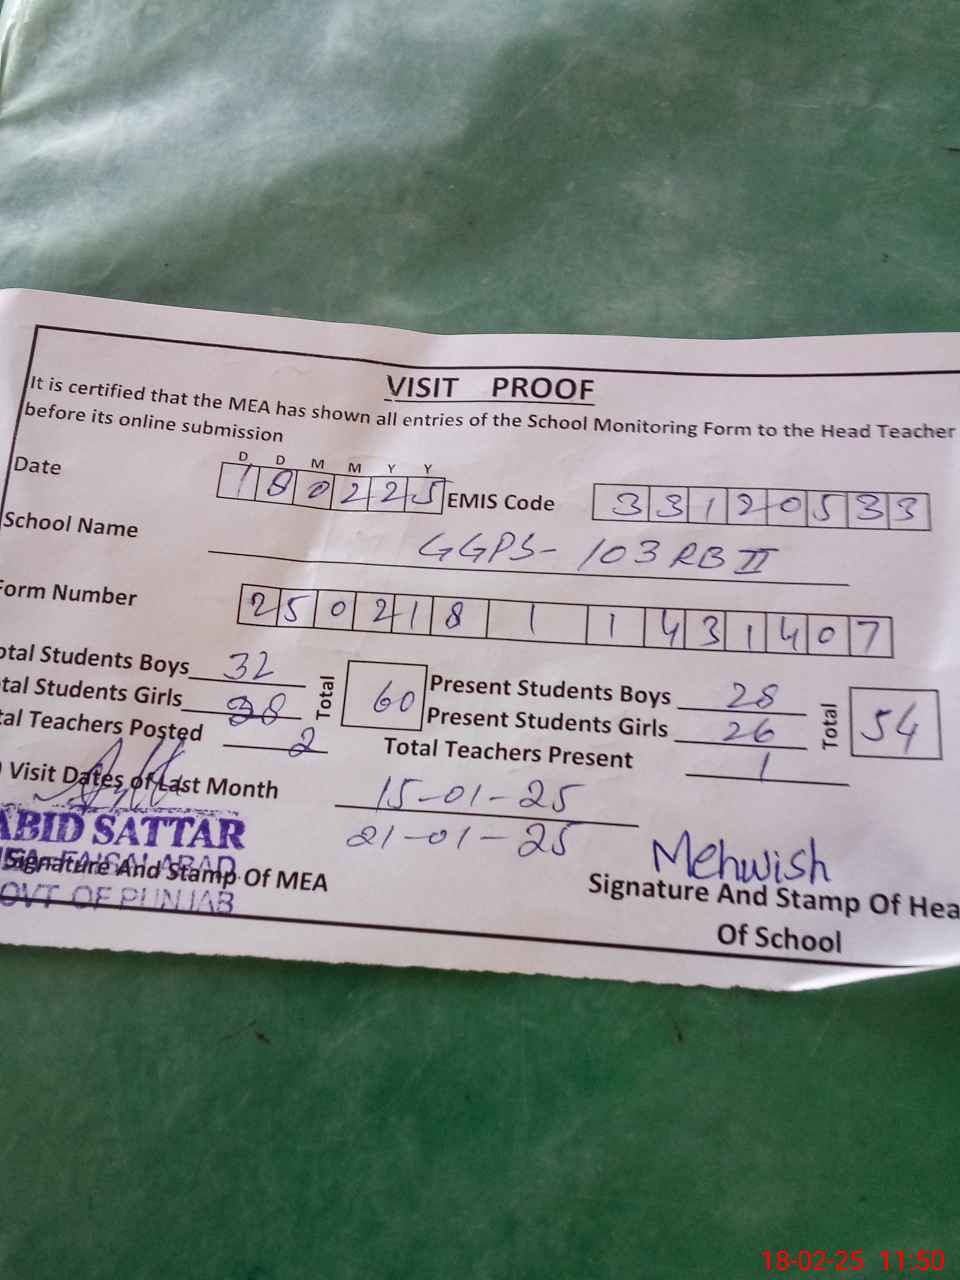 VISIT PROOF
It is certified that the MEA has shown all entries of the School Monitoring Form to the Head Teacher
before its online submission
D D M M Y Y
Date 180225 EMIS Code 33120533
School Name GGPS- 103 RB II
Form Number 25021811431407
otal Students Boys 32 Total 60 Present Students Boys 28 Total 54
tal Students Girls 28 Present Students Girls 26
tal Teachers Posted 2 Total Teachers Present 1
Visit Dates of Last Month 15-01-25
21-01-25
ABID SATTAR
FAISALABAD
Signature And Stamp Of MEA
OVT OF PUNJAB
Mehwish
Signature And Stamp Of Hea
Of School
18-02-25 11:50